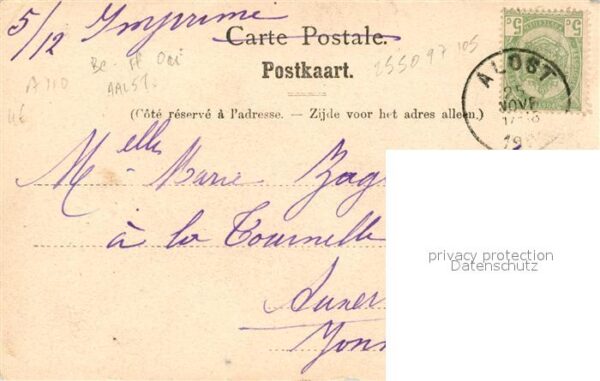 5/12 Imprimé
Carte Postale.
Postkaart.
2550 97 105
A 110
AALST.
(Côté réservé à l'adresse. — Zijde voor het adres alleen.)
5 c 5 c
ALOST
25
NOVE
19
Melle Marie Zag
à la Tournelle
Auxer
Yonn
privacy protection
Datenschutz